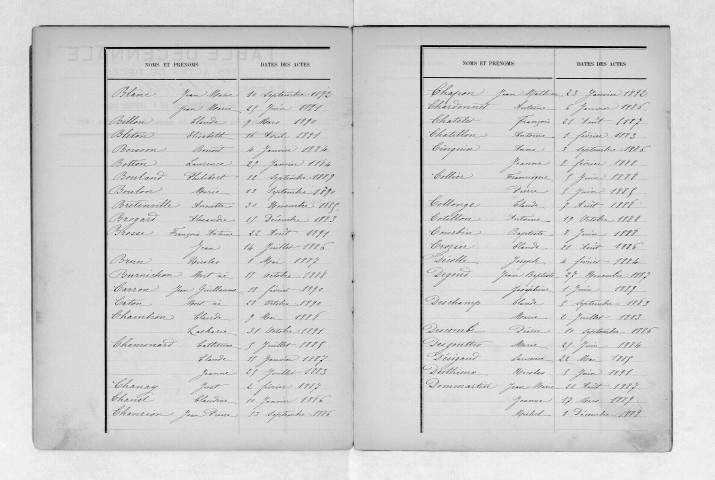 NOMS ET PRÉNOMS DATES DES ACTES
Blanc Jean Marie 10 Septembre 1892
Jean Marie 29 Juin 1891
Billon Claudine 9 Mars 1890
Elisabeth 16 Avril 1891
Benoit 4 Janvier 1884
Botton Laurence 27 Janvier 1884
Bouland Philibert 12 Septembre 1889
Boulon Marie 13 Septembre 1890
Bretonville Annette 30 Novembre 1885
Brigard Alexandre 15 Décembre 1883
Brosse François Antoine 22 Août 1891
Jean 14 Juillet 1886
Brun Nicolas 8 Mai 1887
Burnichon Mort né 15 octobre 1888
Carron Jean Guillaume 18 février 1890
Caton Mort né 20 octobre 1890
Chambion Claude 9 Mai 1886
Zacharie 31 Octobre 1891
Chamonard Catherine 5 Juillet 1885
Claude 11 Janvier 1887
Jeanne 27 Juillet 1883
Chanay Just 2 février 1887
Chanel Claudine 10 Janvier 1886
Chanrion Jean Pierre 13 Septembre 1886
NOMS ET PRÉNOMS DATES DES ACTES
Chapon Jean Mathieu 23 Janvier 1892
Chardonnet Antoine 6 Janvier 1886
Chatelet François 21 Août 1887
Chatillon Antoine 1 février 1883
Cinquin 2 Septembre 1886
Jeanne 2 février 1888
Collier Françoise 5 Juin 1888
Pierre 1 Juin 1885
Collonge Claude 7 Août 1888
Cotillon Antoine 19 Octobre 1888
Baptiste 2 Juin 1888
Crozier Claude 21 Août 1886
Joseph 4 février 1884
Jean Baptiste 27 Novembre 1887
Joséphine 1 Juin 1889
Deschamp Claude 8 Septembre 1883
Marie 2 Juillet 1883
Pierre 10 Septembre 1886
Desgouttes Marie 29 Juin 1884
22 Mai 1885
Nicolas 8 Juin 1891
Dommartin Jean Marie 21 Août 1887
Jeanne 17 Mars 1889
Michel 2 Décembre 1889